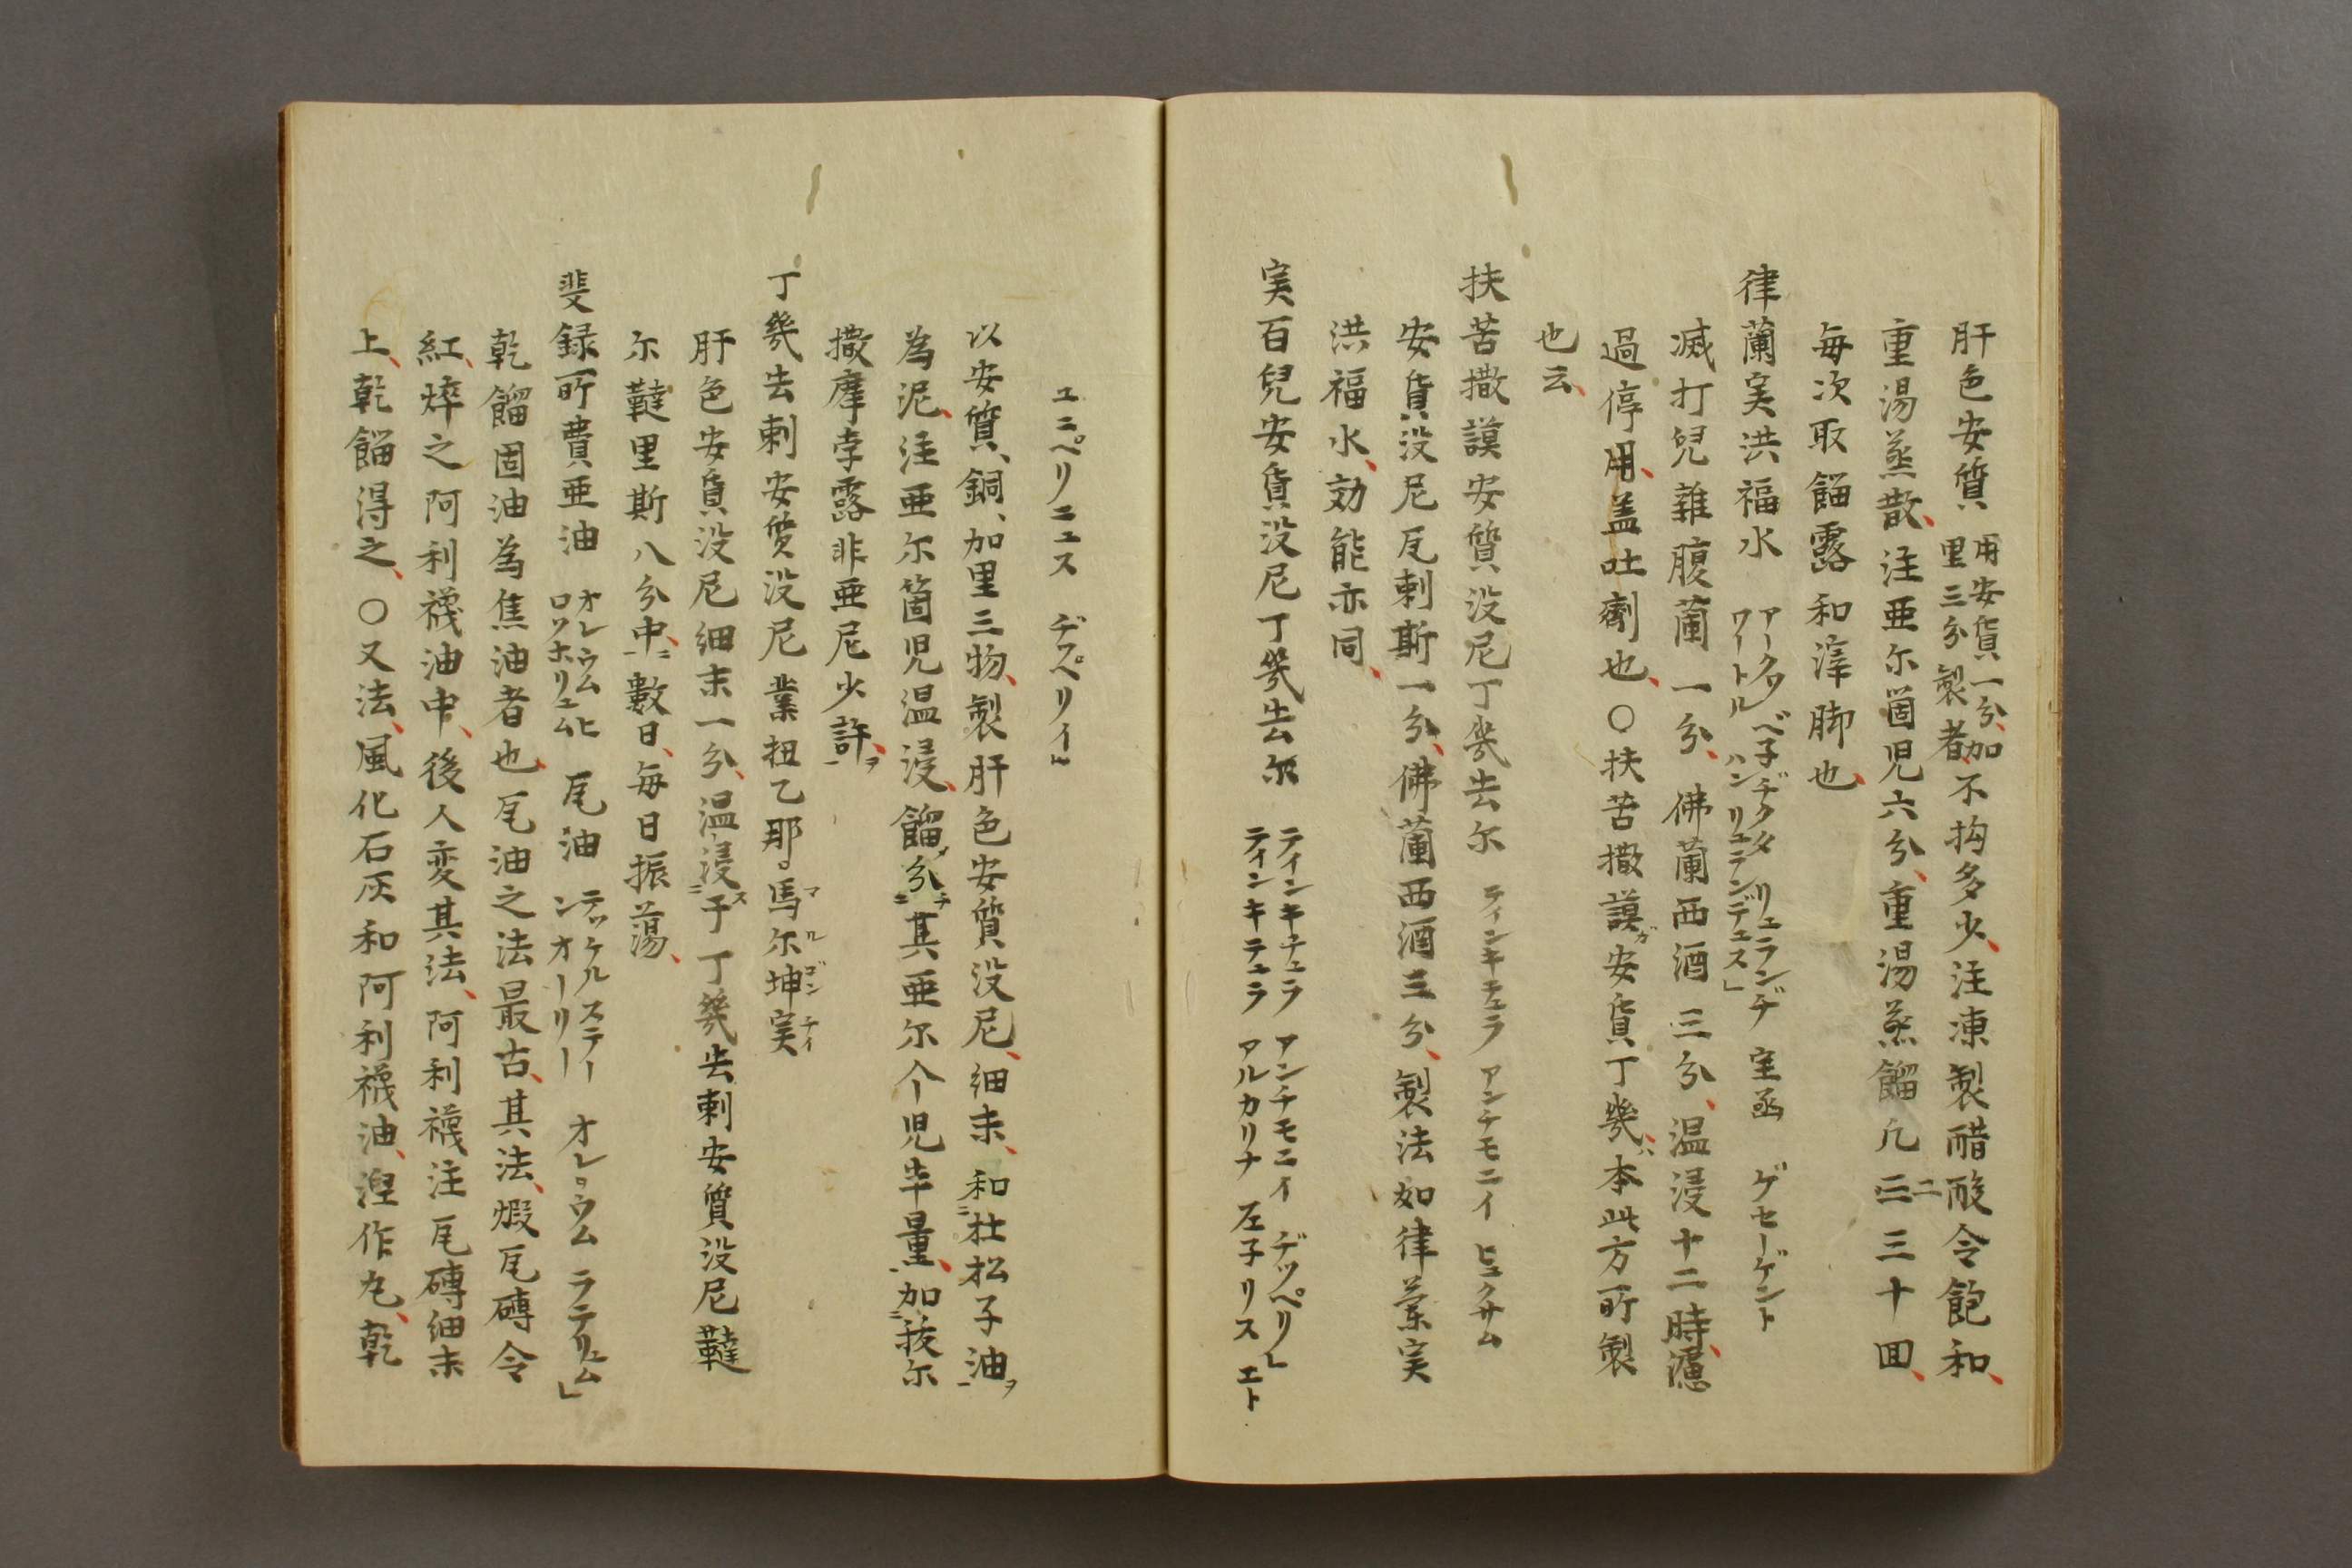 肝色安質 用安貨一分、加里三分製者、不拘多少、注凍製醋酸令飽和、
重湯蒸散、注亜尓箇児六分、重湯蒸餾凡二三十回、
毎次取餾露和滓脚也、
律蘭実洪福水 アークワ ベ子ヂクタ リュランヂ 室函 ゲセーゲント ワートル ハン リュランデュス」
滅打兒雜腹蘭一分、佛蘭西酒三分、温浸十二時、濾
過停用、盖吐劑也、○扶苦撒謨安貨丁幾ハ本此方所製
也云、
扶苦撒謨安質没尼丁幾去尓 ティンキテュラ アンチモニイ ヒュクサム
安貨没尼瓦刺斯一分、佛蘭西酒三分、製法如律蘭実
洪福水、効能亦同、
実百兒安貨没尼丁幾去尓 ティンキテュラ アンチモニイ ヂッペリ ティンキテュラ アルカリナ 左子リス エト
ユニペリニュス ヂペリイ
以安質、銅、加里三物、製肝色安質没尼、細末、和杜松子油ヲ
為泥、注亜尓箇児温浸、餾分其亜尓个児半量、加菝尓
撒摩孛露非亜尼少許、ヲ
丁幾去刺安質没尼 業扭乙那。馬尓坤実 マルゴンティ
肝色安貨没尼細末一分、温浸于丁幾去刺安質没尼韃
尓韃里斯八分中、數日、毎日振蕩、
斐録所費亜油 オレウム ヒロソホリュム 瓦油 テッケルステーン オーリー オレウム ラテリュム」
乾餾固油為焦油者也、瓦油之法最古、其法、煅瓦磚令
紅、焠之阿利襪油中、後人変其法、阿利襪注瓦磚細末
上、乾餾得之、○又法、風化石灰和阿利襪油、湼作丸、乾